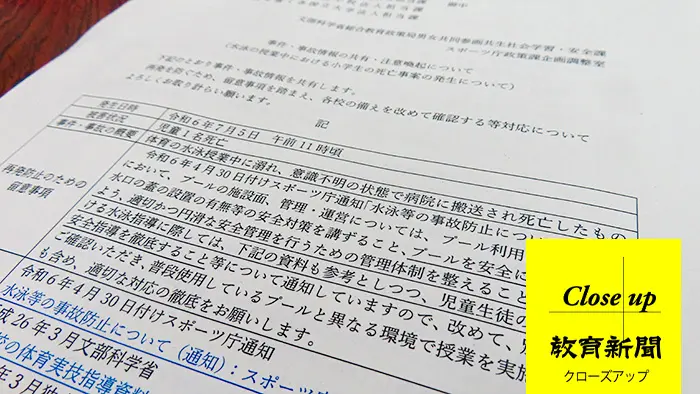 文部科学省総合教育政策局男女共同参画共生社会学習・安全課
スポーツ庁政策課企画調整室
事件・事故情報の共有・注意喚起について
(水泳の授業中における小学生の死亡事案の発生について)
下記のとおり事件・事故情報を共有します。
再発を防ぐため、留意事項を踏まえ、各校の備えを改めて確認する等対応について
よろしくお取り計らい願います。
記
発生日時
令和6年7月5日 午前11時頃
被害状況
児童1名死亡
事件・事故の概要
体育の水泳授業中に溺れ、意識不明の状態で病院に搬送され死亡したもの
再発防止のための
留意事項
令和6年4月30日付けスポーツ庁通知「水泳等の事故防止につい
において、プールの施設面、管理・運営については、プール利用
水口の蓋の設置の有無等の安全対策を講ずること、プールを安全に
よう、適切かつ円滑な安全管理を行うための管理体制を整えること
ける水泳指導に際しては、下記の資料も参考としつつ、児童生徒の
安全指導を徹底すること等について通知していますので、改めて、
ご確認いただき、普段使用しているプールと異なる環境で授業を実施
も含め、適切な対応の徹底をお願いします。
令和6年4月30日付けスポーツ庁通知
水泳等の事故防止について(通知):スポーツ
成26年3月文部科学省
の体育実技指導資料
年3月独
Close up
教育新聞
クローズアップ